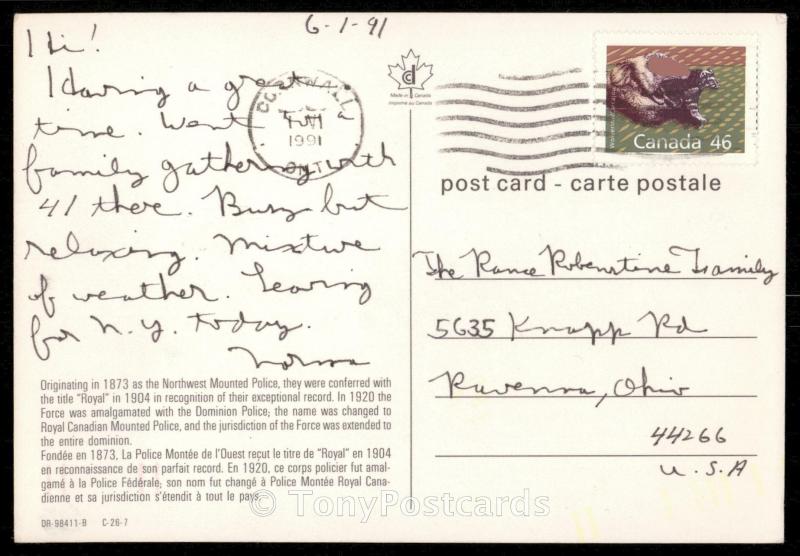 6-1-91
Hi!
Having a great
time. Went to a
family gathering with
41 there. Busy but
relaxing. Mixture
of weather. Leaving
for N.Y. today.
Norma
Originating in 1873 as the Northwest Mounted Police, they were conferred with
the title "Royal" in 1904 in recognition of their exceptional record. In 1920 the
Force was amalgamated with the Dominion Police; the name was changed to
Royal Canadian Mounted Police, and the jurisdiction of the Force was extended to
the entire dominion.
Fondée en 1873, La Police Montée de l'Ouest reçut le titre de "Royal" en 1904
en reconnaissance de son parfait record. En 1920, ce corps policier fut amal-
gamé à la Police Fédérale; son nom fut changé à Police Montée Royal Cana-
dienne et sa jurisdiction s'étendit à tout le pays.
DR-98411-B C-26-7
CORNWALL
1991
ONT
cd
Made in Canada
Imprimé au Canada
Canada 46
post card - carte postale
The Rance Robenstine Family
5635 Knapp Rd
Ravenna, Ohio
44266
U.S.A
© TonyPostcards